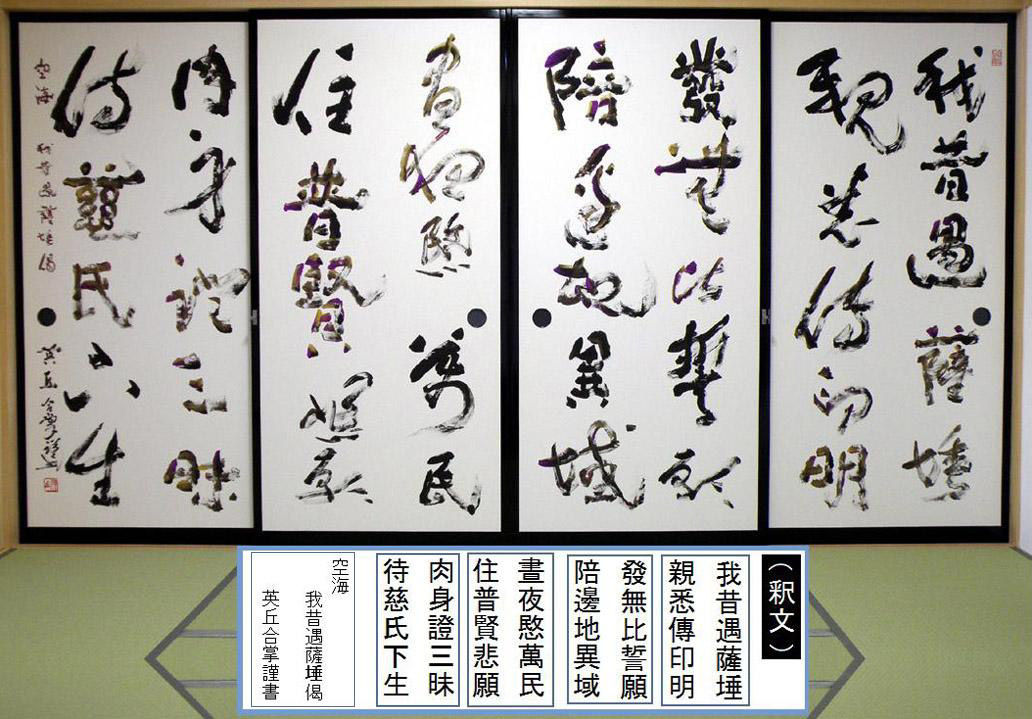 我昔遇薩埵
親悉傳印明
發無比誓願
陪邊地異域
晝夜愍萬民
住普賢悲願
肉身證三昧
待慈氏下生
空海 我昔遇薩埵偈 英丘合掌謹書
（釈文）
我昔遇薩埵
親悉傳印明
發無比誓願
陪邊地異域
晝夜愍萬民
住普賢悲願
肉身證三昧
待慈氏下生
空海
我昔遇薩埵偈
英丘合掌謹書